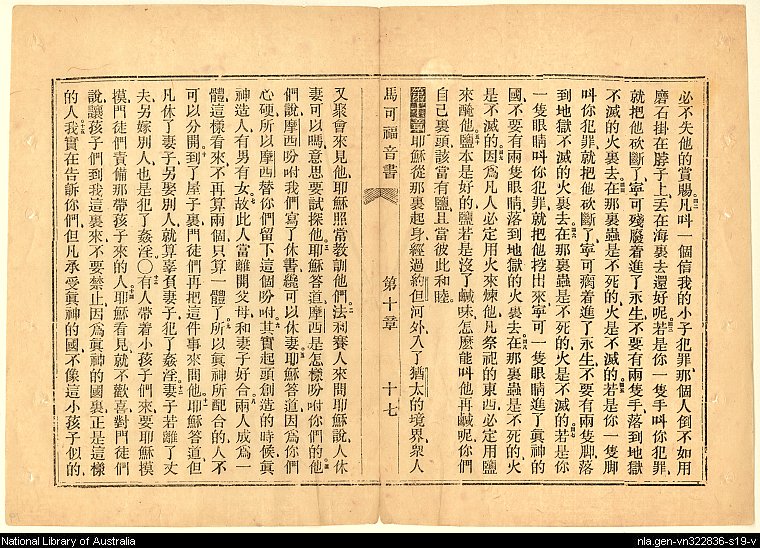 必不失他的賞賜凡叫一個信我的小子犯罪那個人倒不如用
磨石掛在脖子上丟在海裏去還好呢若是你一隻手叫你犯罪
就把他砍斷了寧可殘廢着進了永生不要有兩隻手落到地獄
不滅的火裏去在那裏蟲是不死的火是不滅的若是你一隻脚
叫你犯罪就把他砍斷了寧可瘸着進了永生不要有兩隻脚落
到地獄不滅的火裏去在那裏蟲是不死的火是不滅的若是你
一隻眼睛叫你犯罪就把他挖出來寧可一隻眼睛進了眞神的
國不要有兩隻眼睛落到地獄的火裏去在那裏蟲是不死的火
是不滅的因爲凡人必定用火來煉他凡祭祀的東西必定用鹽
來醃他鹽本是好的鹽若是沒了鹹味怎麼能叫他再鹹呢你們
自己裏頭該當有鹽且當彼此和睦
第十章耶穌從那裏起身經過約但河外入了猶太的境界衆人
馬可福音書 第十章 十七
又聚會來見他耶穌照常教訓他們法利賽人來問耶穌說人休
妻可以嗎意思要試探他耶穌答道摩西是怎樣吩咐你們的他
們說摩西吩咐我們寫了休書纔可以休妻耶穌答道因爲你們
心硬所以摩西替你們留下這個吩咐其實起頭創造的時候眞
神造人有男有女故此人當離開父母和妻子好合兩人成爲一
體這樣看來不再算兩個只算一體了所以眞神所配合的人不
可以分開到了屋子裏門徒們再把這件事來問他耶穌答道但
凡休了妻子另娶別人就算辜負妻子犯了姦淫妻子若離了丈
夫另嫁別人也是犯了姦淫〇有人帶着小孩子們來要耶穌摸
摸門徒們責備那帶孩子來的人耶穌看見就不歡喜對門徒們
說讓孩子們到我這裏來不要禁止因爲眞神的國裏正是這樣
的人我實在告訴你們但凡承受眞神的國不像這小孩子似的
National Library of Australia
nla.gen-vn322836-s19-v